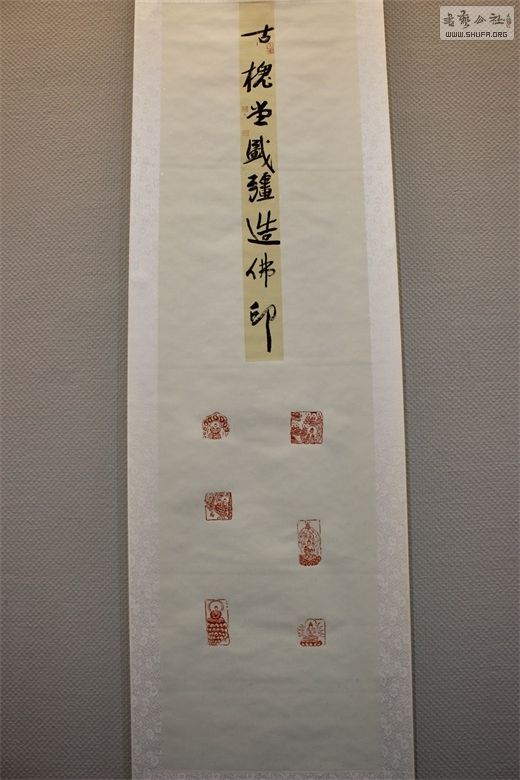 古槐堂盛疆造佛印
書藝公社
WWW.SHUFA.ORG